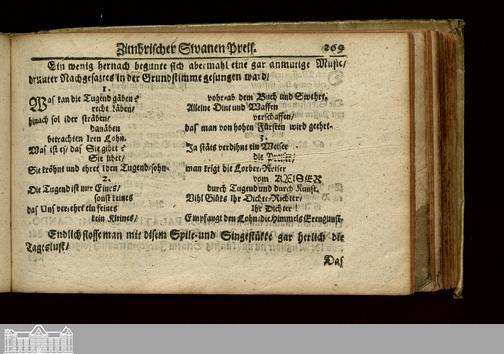 Zimbrischer Swanen Preis. 269
Ein wenig hernach begunte sich abermahl eine gar anmutige Music/
drunter Nachgesaztes in der Grundstimme gesungen ward/
1.
Was kan die Tugend gäben?
rechte läben/
hinach sol ider sträben/
danäben
betrachten iren Lohn.
Was ist es/ das Sie gibet?
Sie libet/
Sie kröhnt und ehret iden Tugendsohn
2.
Die Tugend ist nur Eines/
sonst keines
das Uns verehrt ein feines
kein Kleines/
vohr-ab dem Buch und Swehrt.
Alleine Dint und Waffen
verschaffen/
das man von hohen Fürsten wird geehrt.
3.
Ja stäts verdihnt ein Weiser
die
man krigt die Lorber-Reiser
vom KEISER
durch Tugend und durch Kunst.
Vihl Glüks Ihr Dichter-Richter/
Ihr Dichter!
Empfangt den Lohn/die Himmels Breugunst.
Endlich stosse man mit disem Spile-und Singestükke gar herlich die
Tageslust/
Das